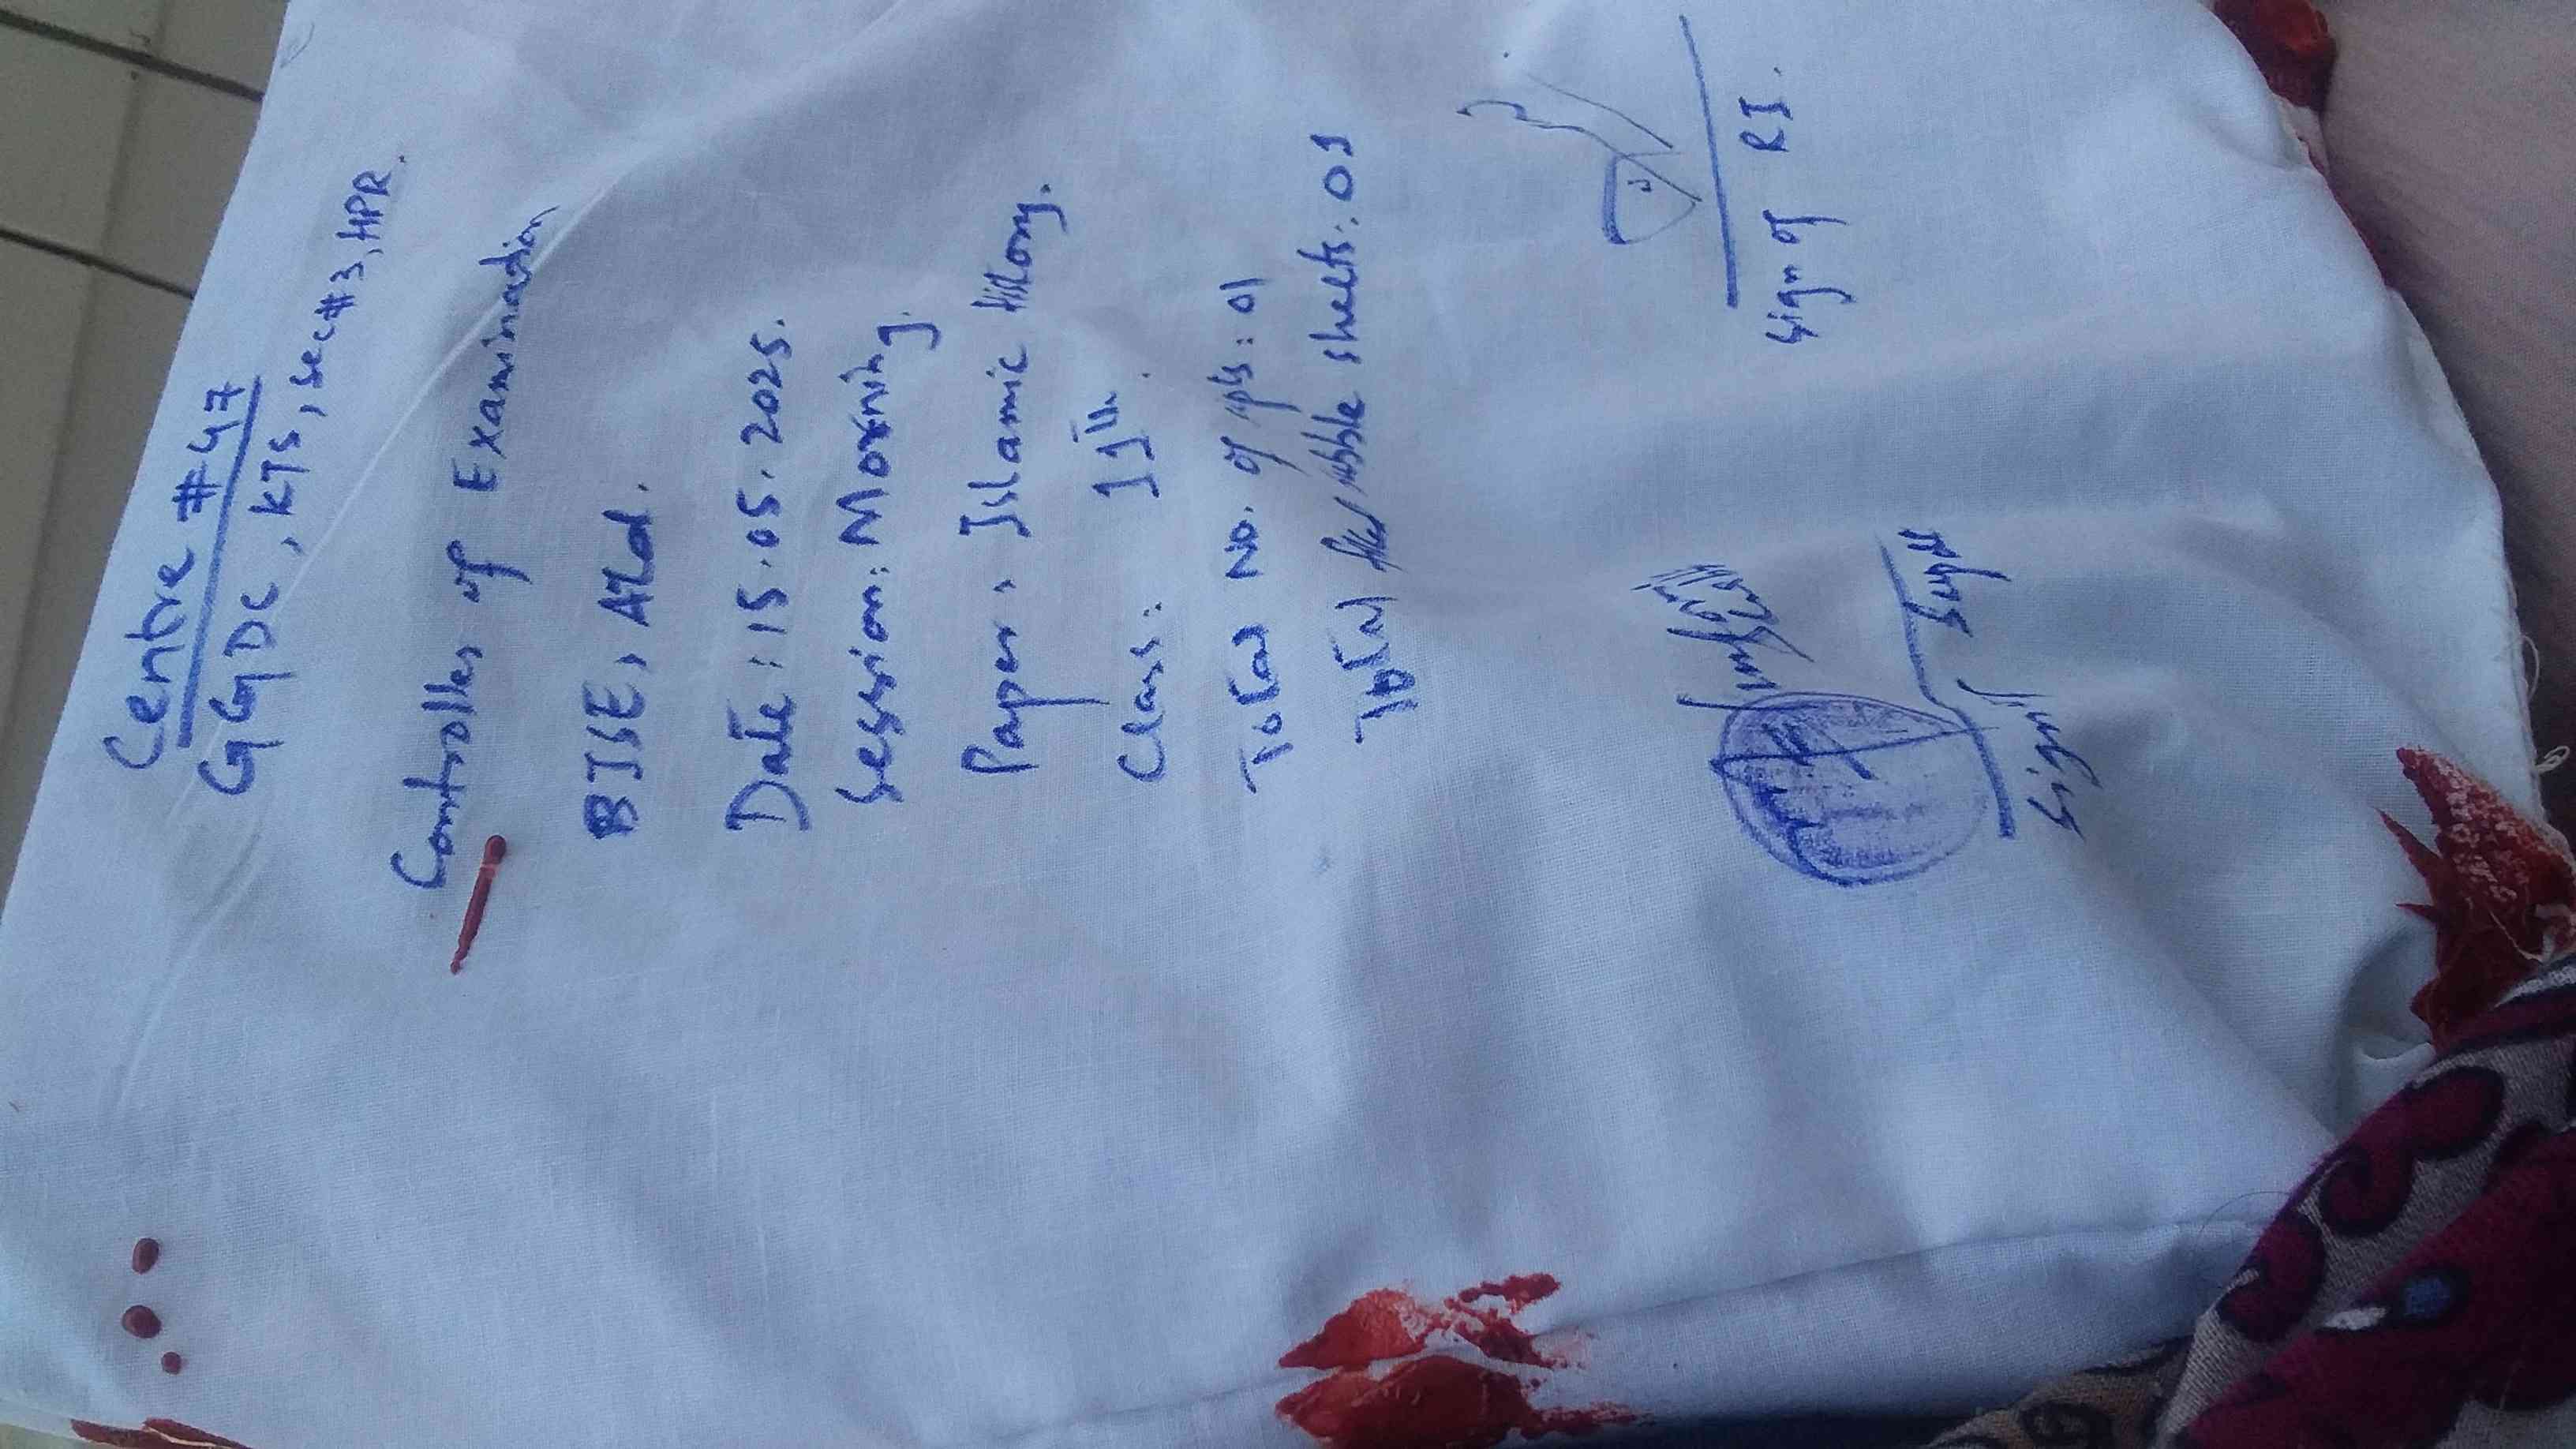 Centre #47
GGDC, KTS, sec#3, HPR.
Controller of Examination
BISE, ATD.
Date: 15.05.2025.
Session: Morning.
Paper: Islamic History.
Class: 11th.
Total No. of
Total sheets: 01
Sign of Supdt
Sign of RI.